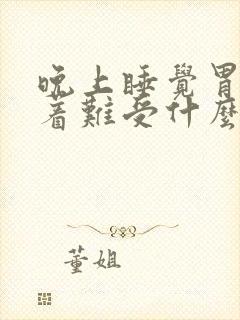 晚上睡覺胃
着難受什麼
董姐